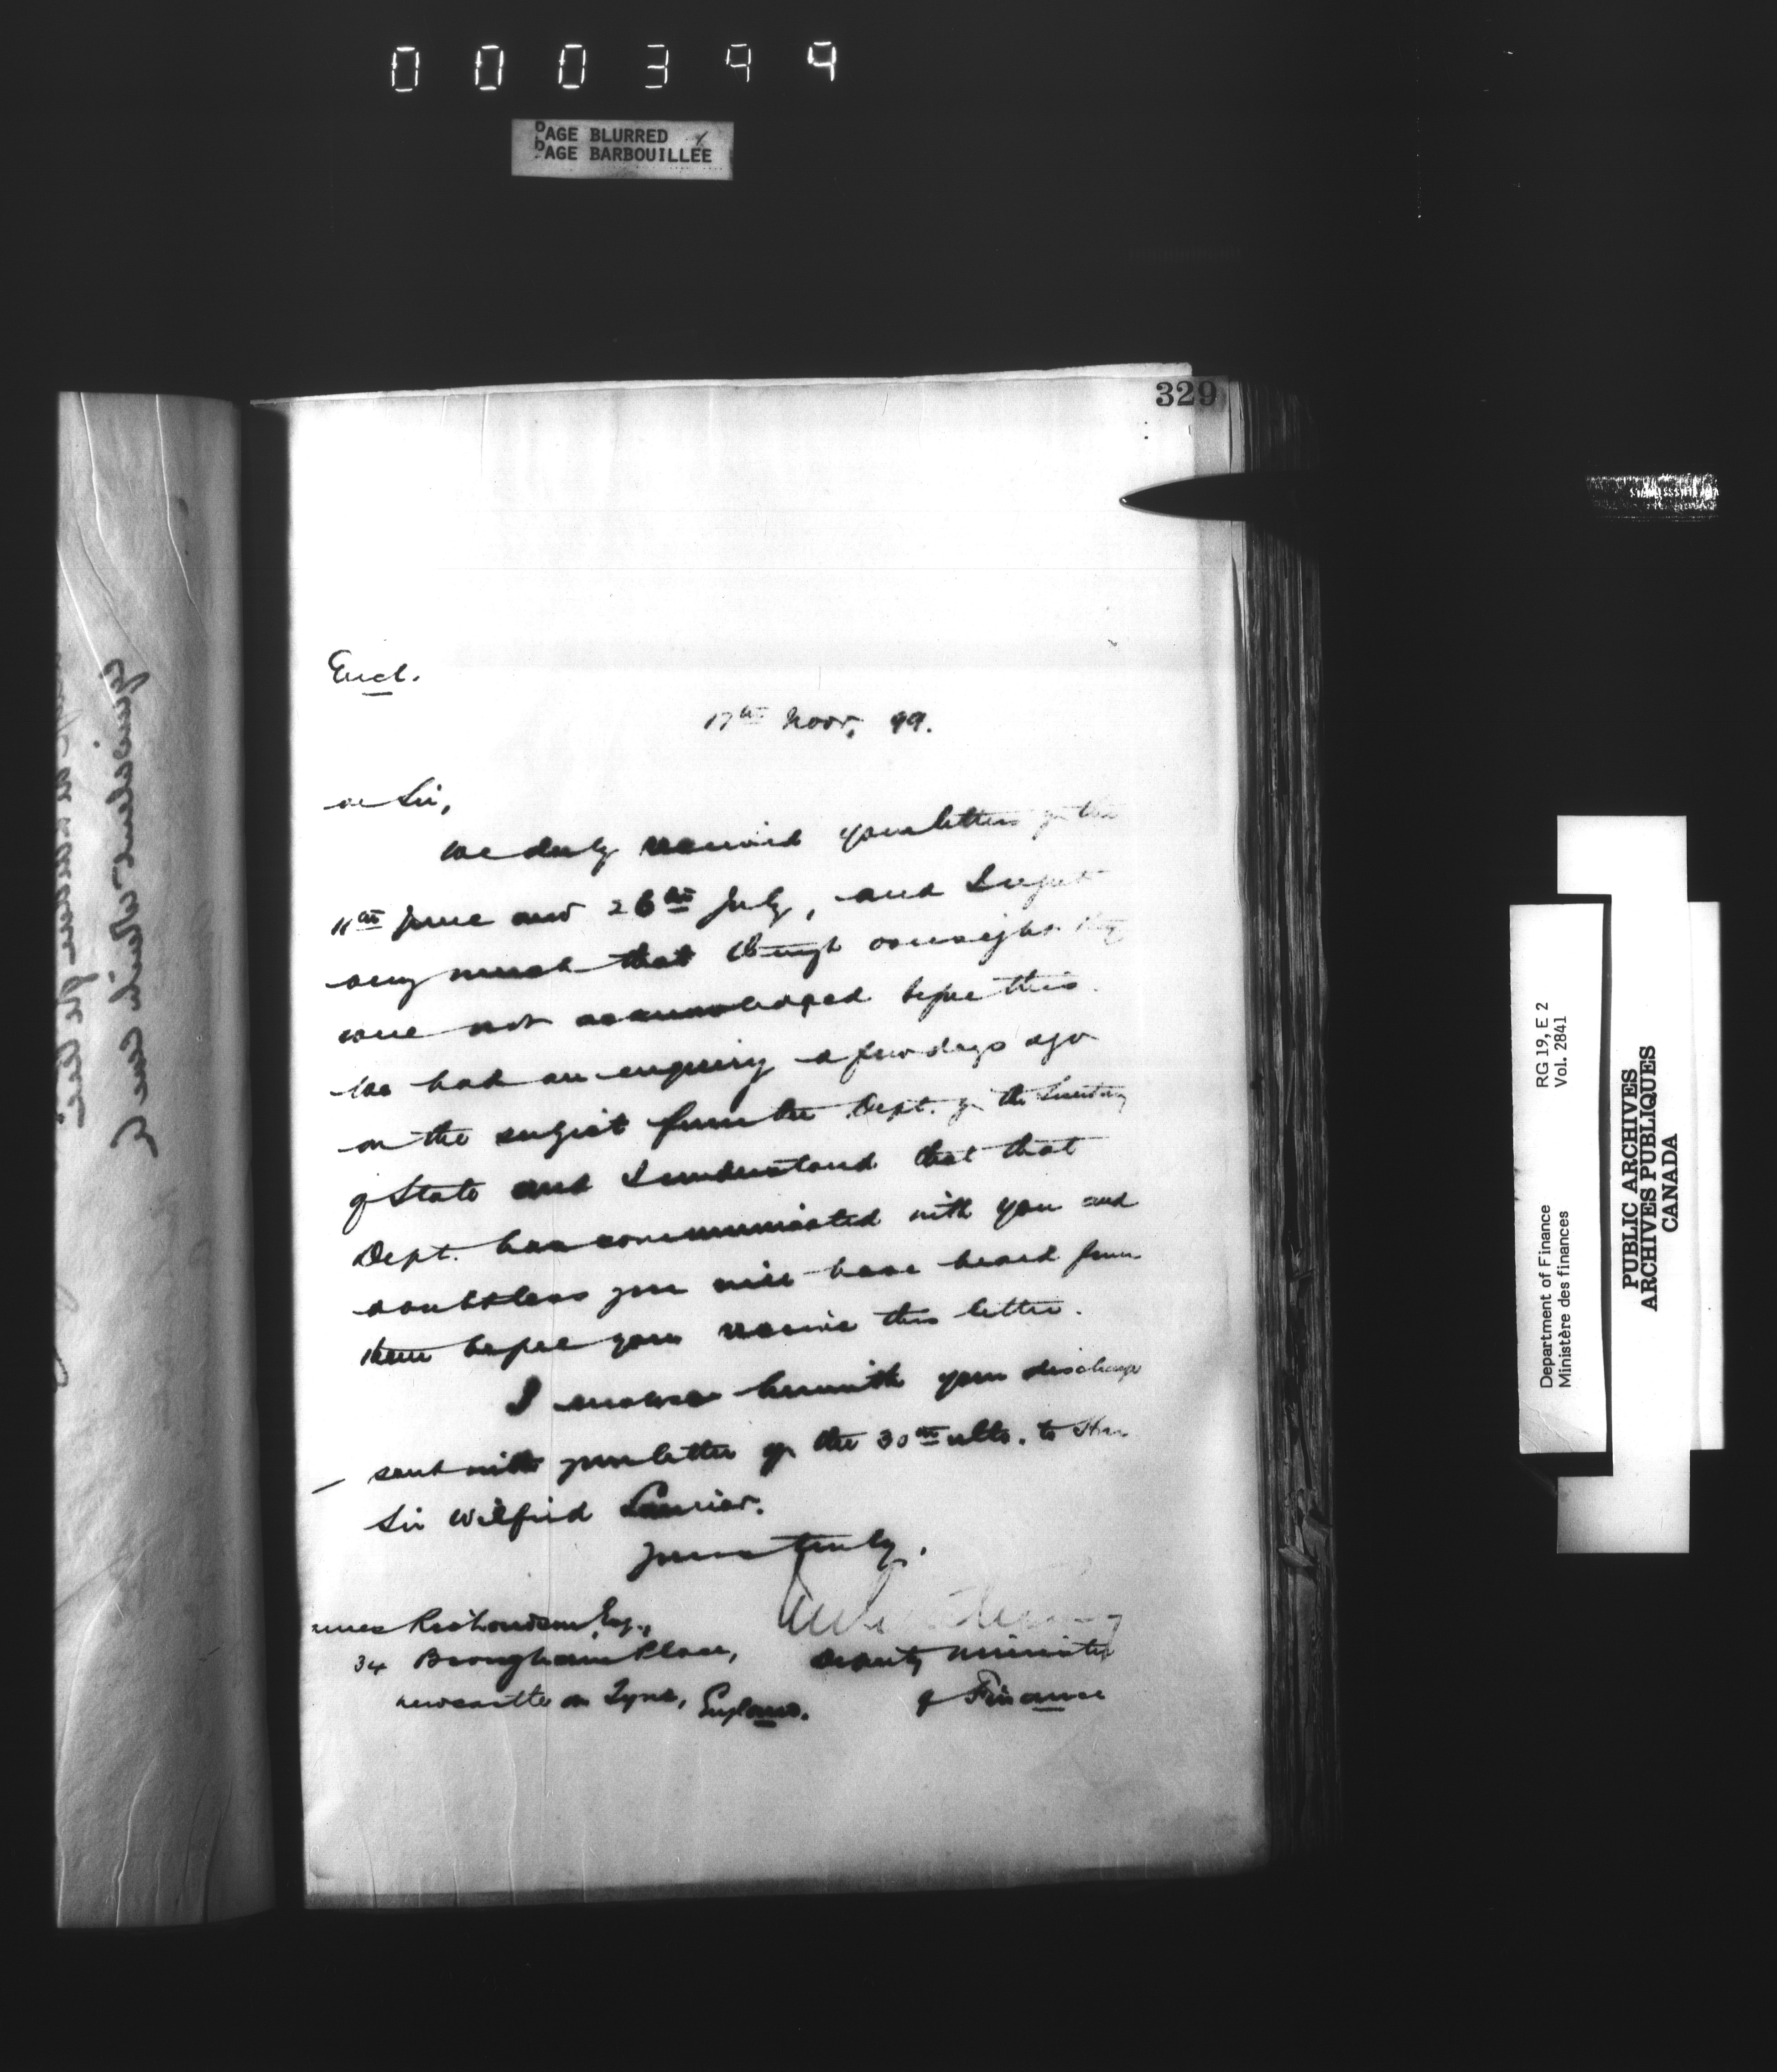 000399
PAGE BLURRED
PAGE BARBOUILLÉE
329
Encl.
17th Novr, 99.
Sir,
We duly received your letters of the
11th June and 26th July, and I regret
very much that through oversight they
were not acknowledged before this.
We had an enquiry a few days ago
on the subject from the Dept. of the Secretary
of State and I understand that that
Dept. has communicated with you and
doubtless you will have heard from
them before you receive this letter.
I enclose herewith your discharge
sent with your letter of the 30th ulto. to Hon
Sir Wilfrid Laurier.
Yours truly,
Richardson, Esq.,
34 Brougham Place,
Newcastle on Tyne, England.
Deputy Minister
of Finance
Department of Finance
Ministère des finances
RG 19, E 2
Vol. 2841
PUBLIC ARCHIVES
ARCHIVES PUBLIQUES
CANADA